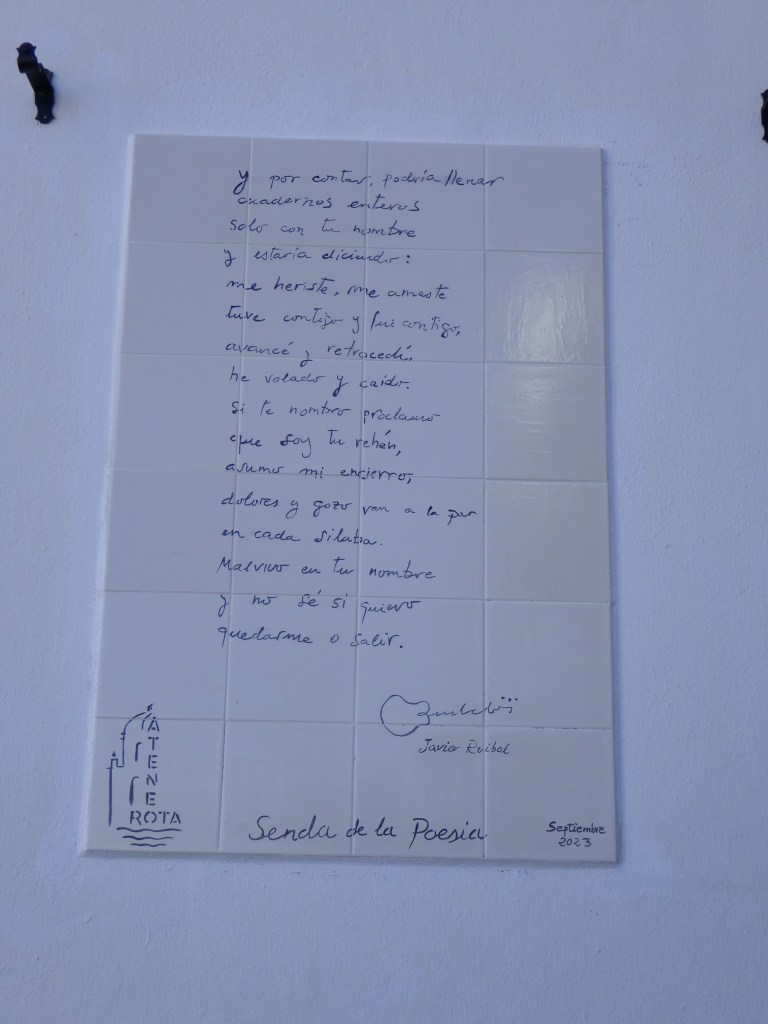 y por contar, podría llenar
cuadernos enteros
solo con tu nombre
y estaría diciendo:
me heriste, me amaste
tuve contigo y fui contigo,
avancé y retrocedí,
he volado y caído.
Si te nombro proclamo
que soy tu rehén,
asumo mi encierro,
dolores y gozo van a la par
en cada sílaba.
Malvivo en tu nombre
y no sé si quiero
quedarme o salir.
Javier Ruibal
ATENE
ROTA
Senda de la Poesía
Septiembre
2023